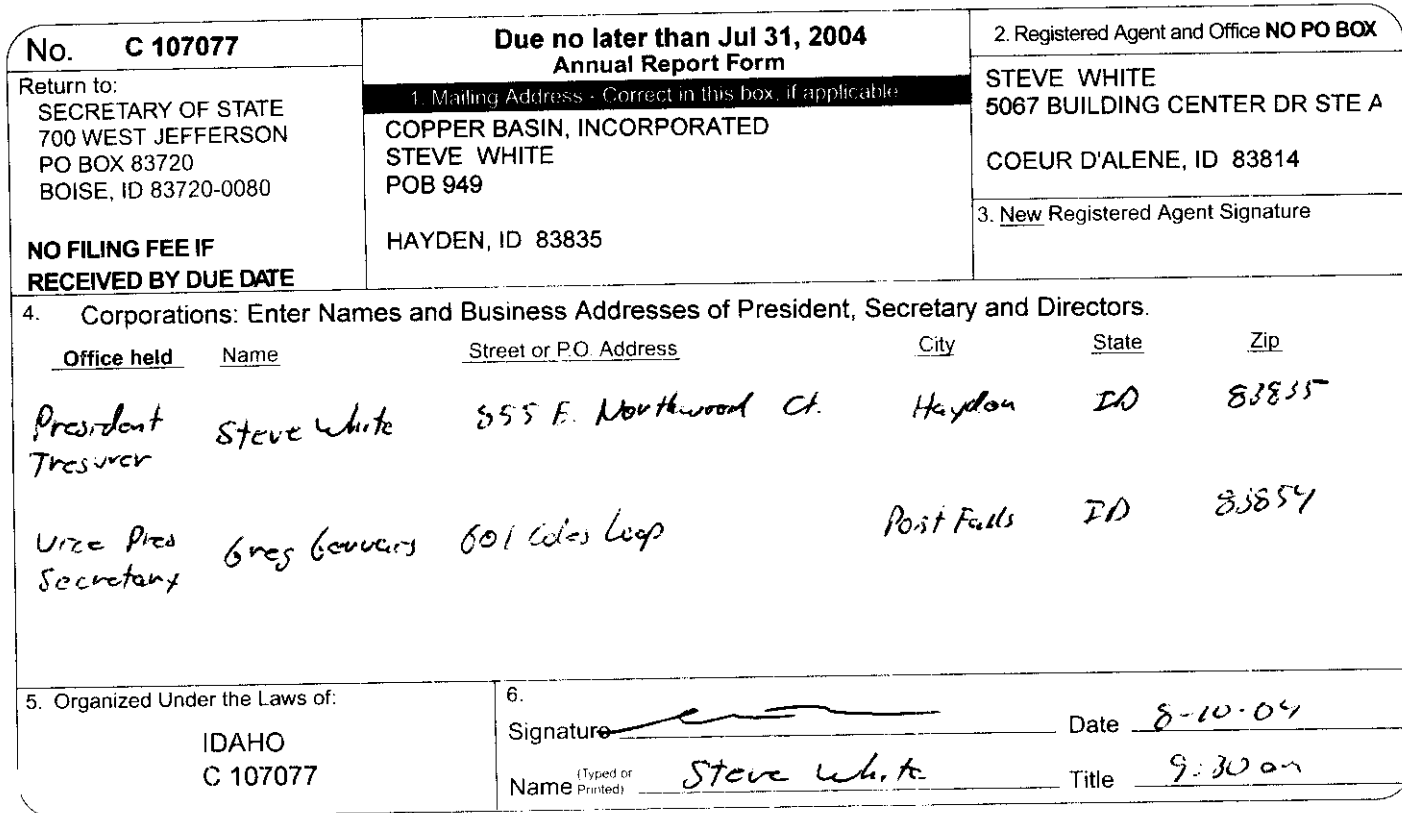 No. C 107077
Return to:
SECRETARY OF STATE
700 WEST JEFFERSON
PO BOX 83720
BOISE, ID 83720-0080
NO FILING FEE IF
RECEIVED BY DUE DATE
Due no later than Jul 31, 2004
Annual Report Form
1. Mailing Address - Correct in this box, if applicable
COPPER BASIN, INCORPORATED
STEVE WHITE
POB 949
HAYDEN, ID 83835
2. Registered Agent and Office NO PO BOX
STEVE WHITE
5067 BUILDING CENTER DR STE A
COEUR D'ALENE, ID 83814
3. New Registered Agent Signature
4. Corporations: Enter Names and Business Addresses of President, Secretary and Directors.
Office held Name Street or P.O. Address City State Zip
President Steve White 855 E. Northwood Ct. Hayden ID 83835
Tresurer
Vice Pres Greg 601 Loop Post Falls ID 83854
Secretary
5. Organized Under the Laws of:
IDAHO
C 107077
6.
Signature Date 8-10-04
Name (Typed or Printed) Steve White Title 9:30 am